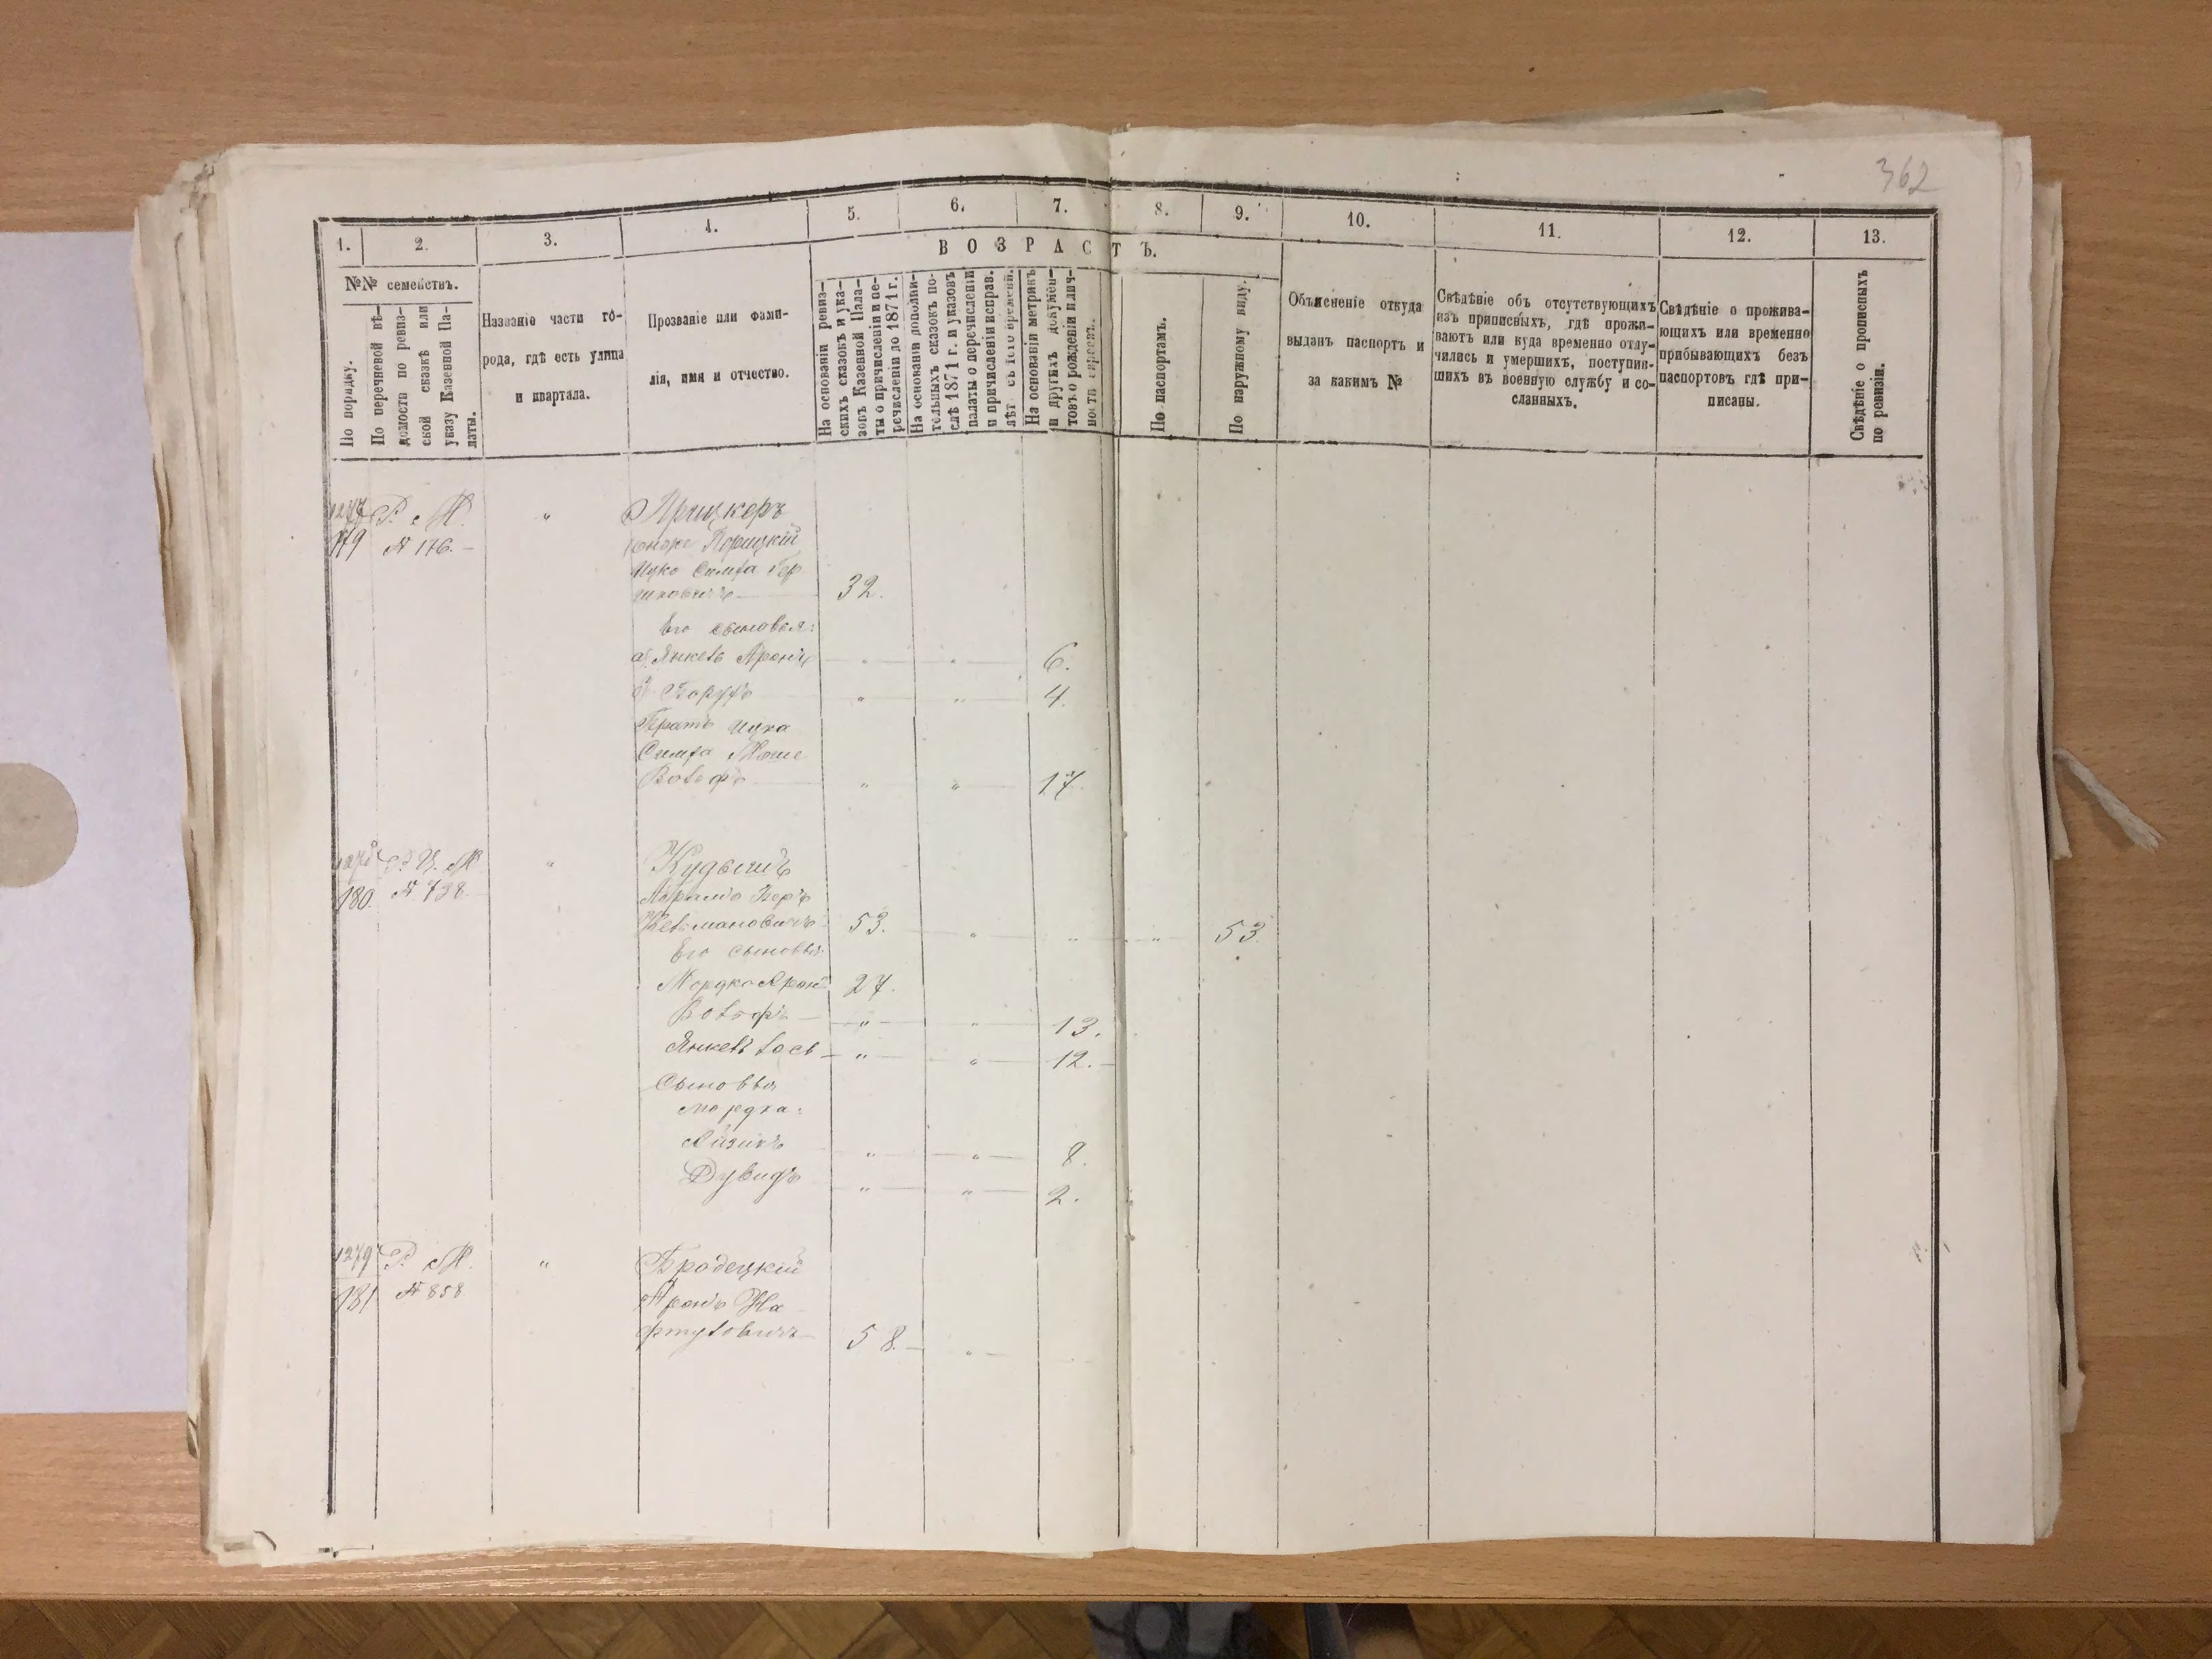 362
1. 2. 3. 4. 5. 6. 7. 8. 9. 10. 11. 12. 13.
ВОЗРАСТЪ.
№№ семействъ.
По порядку.
По перечневой вѣ-
домости по ревиз-
ской сказкѣ или
указу Казенной Па-
латы.
Названіе части го-
рода, гдѣ есть улица
и квартала.
Прозваніе или фами-
лія, имя и отчество.
На основаніи ревиз-
скихъ сказокъ и ука-
зовъ Казенной Пала-
ты о причисленіи и пе-
речисленіи до 1871 г.
На основаніи дополни-
тельныхъ сказокъ по-
слѣ 1871 г. и указовъ
палаты о перечисленіи
и причисленіи исправ.
лѣт съ того времени.
На основаніи метрикъ
и другихъ докумен-
товъ о рожденіи и лич-
ности евреевъ.
По паспортамъ.
По наружному виду.
Объясненіе откуда
выданъ паспортъ и
за какимъ №
Свѣдѣніе объ отсутствующихъ
изъ приписныхъ, гдѣ прожи-
ваютъ или куда временно отлу-
чились и умершихъ, поступив-
шихъ въ военную службу и со-
сланныхъ.
Свѣдѣніе о прожива-
ющихъ или временно
прибывающихъ безъ
паспортовъ гдѣ при-
писаны.
Свѣдѣніе о прописныхъ
по ревизіи.
1277 Р. М. " Прицкеръ
179 № 176. — онже Порицкій
Ицко Симха Гер
шковичъ — 32.
Его сыновья:
а, Янкель Аронъ — " — " — 6.
б Борухъ — " — " — 4.
Братъ Ицка
Симха Моше
Вольфъ — " — " — 17.
1278 Р. Ц. М " Кудышъ
180. № 738. Абрамъ Беръ
Кельмановичъ 53. — " — " — " — 53.
Его сыновья:
Мордко Аронъ 27.
Вольфъ — " — " — 13.
Янкель Лось — " — " — 12. —
Сыновья
Мордка:
Айзикъ " — " — 8.
Дувидъ " — " — 2.
1279 Р. М. " Бродецкій
181 № 858 Аронъ На
фтуловичъ — 58. — "